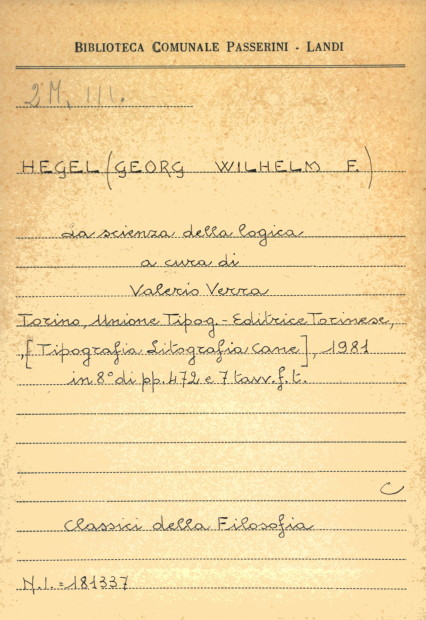 BIBLIOTECA COMUNALE PASSERINI - LANDI
2°M. III.
HEGEL (GEORG WILHELM F.)
La scienza della logica
a cura di
Valerio Verra
Torino, Unione Tipog-Editrice Torinese,
,[Tipografia Litografia Cane], 1981
in 8° di pp. 472 e 7 tavv. f. t.
C
Classici della Filosofia
N.I. = 181337